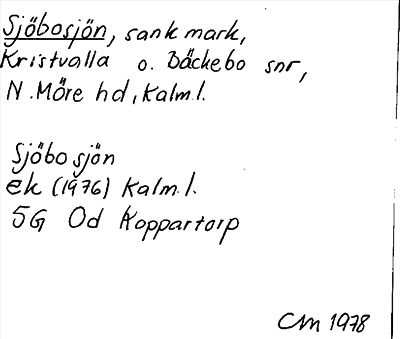 Sjöbosjön, sank mark,
Kristvalla o. Bäckebo snr,
N. Möre hd, Kalm.l.
Sjöbosjön
ek (1976) Kalm.l.
5G Od Koppartorp
CM 1978